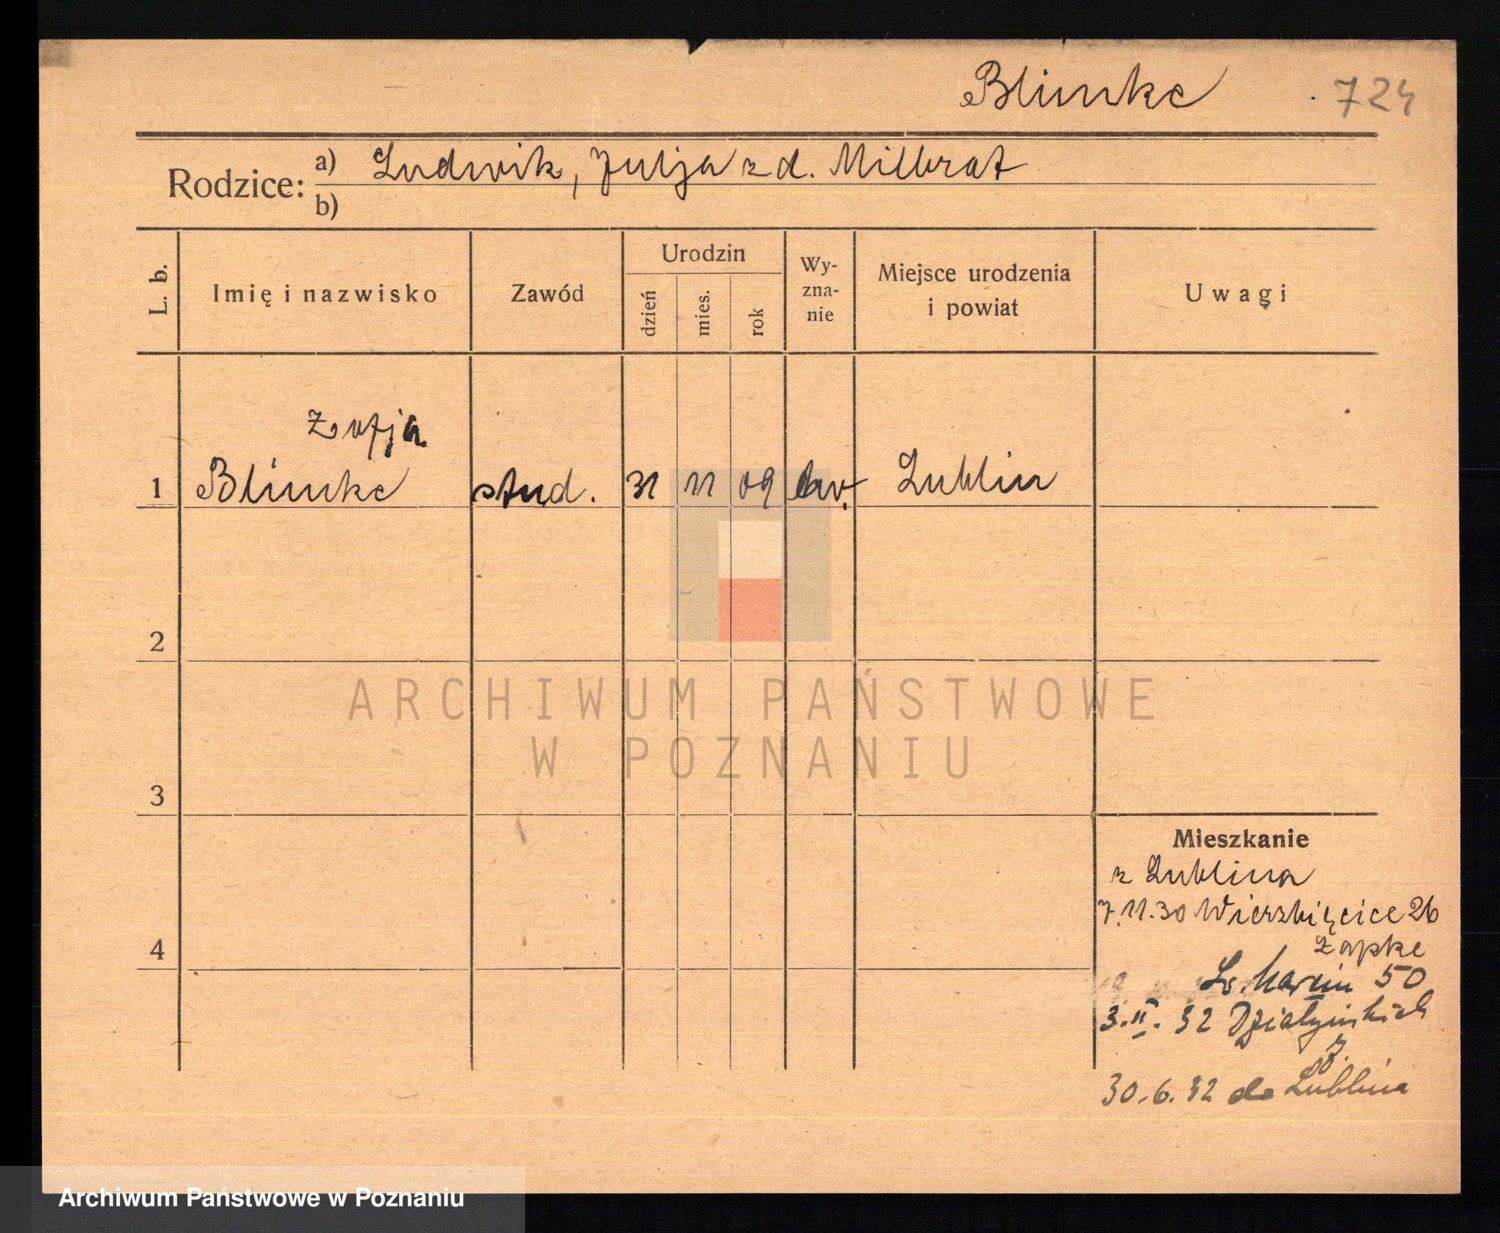 Blimke 724
Rodzice: a) Ludwik, Julja z d. Milbrat
b)
L. b. Imię i nazwisko Zawód Urodzin dzień mies. rok Wy-zna-nie Miejsce urodzenia i powiat Uwagi
Zofja
1 Blimke stud. 31 11 09 Lublin
2
ARCHIWUM PAŃSTWOWE
W POZNANIU
3
Mieszkanie
z Lublina
7.11.30 Wierzbięcice 26
Zapke
4
Św. Marcin 50
3.II.32 Działyńskich
7.
30.6.32 do Lublina
Archiwum Państwowe w Poznaniu